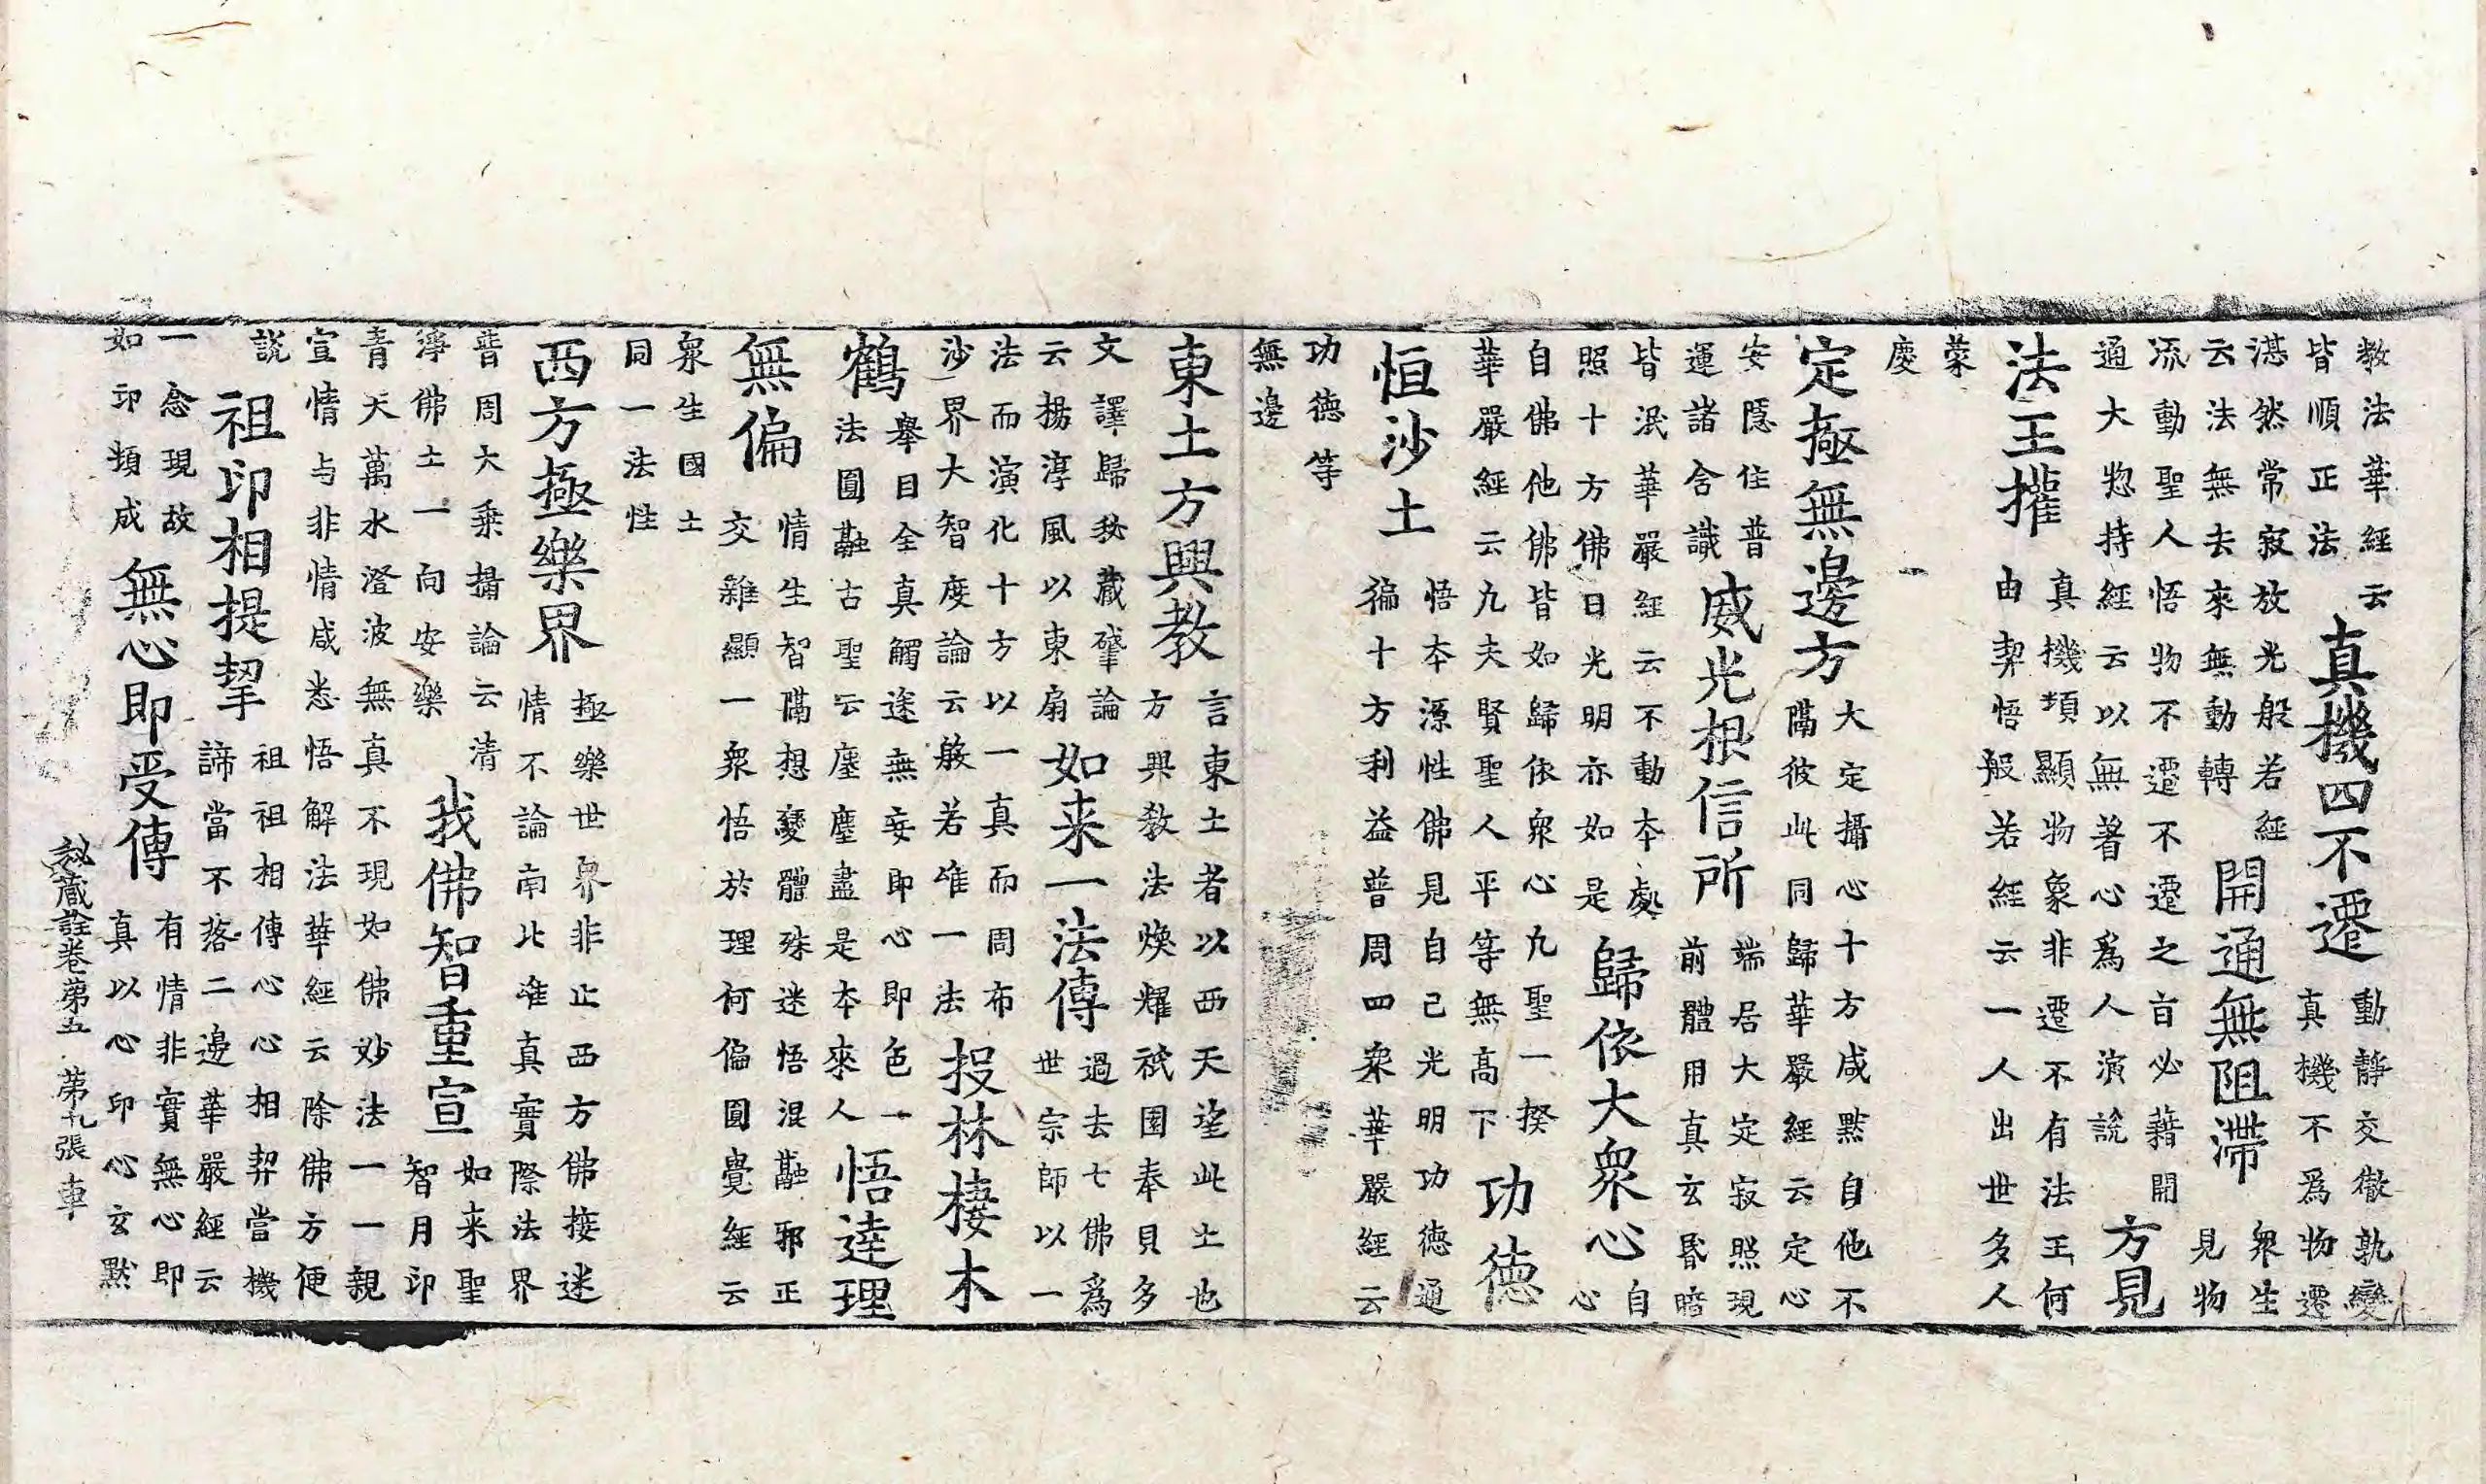 教法華經云
皆順正法
真機四不遷
動靜交徹孰變
真機不爲物遷
湛然常寂放光般若經
云法無去來無動轉
開通無阻滯
衆生
見物
流動聖人悟物不遷不遷之旨必藉開
通大惣持經云以無著心爲人演說
方見
法王權
真機頓顯物象非遷不有法王何
由契悟般若經云一人出世多人
蒙
慶
定極無邊方
大定攝心十方咸黙自他不
隔彼此同歸華嚴經云定心
安隱住普
運諸含識
威光根信所
端居大定寂照現
前體用真玄昬暗
皆泯華嚴經云不動本處
照十方佛日光明亦如是
歸依大衆心
自
心
自佛他佛佛皆如歸依衆心凡聖一揆
華嚴經云凡夫賢聖人平等無高下
功德
恒沙土
悟本源性佛見自己光明功德通
徧十方利益普周四衆華嚴經云
功德等
無邊
東土方興教
言東土者以西天望此土也
方興教法煥耀祇園奉貝多
文譯歸秘藏肇論
云揚淳風以東扇
如来一法傳
過去七佛爲
世宗師以一
法而演化十方以一真而周布
沙界大智度論云般若唯一法
投林棲木
鶴
舉目全真觸途無妄即心即色一
法圓融古聖云塵塵盡是本來人
悟達理
無偏
情生智隔想變體殊迷悟混融邪正
交雜顯一衆悟於理何偏圓覺經云
衆生國土
同一法性
西方極樂界
極樂世界非止西方佛接迷
情不論南北唯真實際法界
普周大乘攝論云清
淨佛土一向安樂
我佛智重宣
如来聖
智月印
青天萬水澄波無真不現如佛妙法一一親
宣情与非情咸悉悟解法華經云除佛方便
說
祖印相提挈
祖祖相傳心心相契當機
諦當不落二邊華嚴經云
一念現故
如印頓成
無心即受傳
有情非實無心即
真以心印心玄黙
祕藏詮卷第五 第九張 車